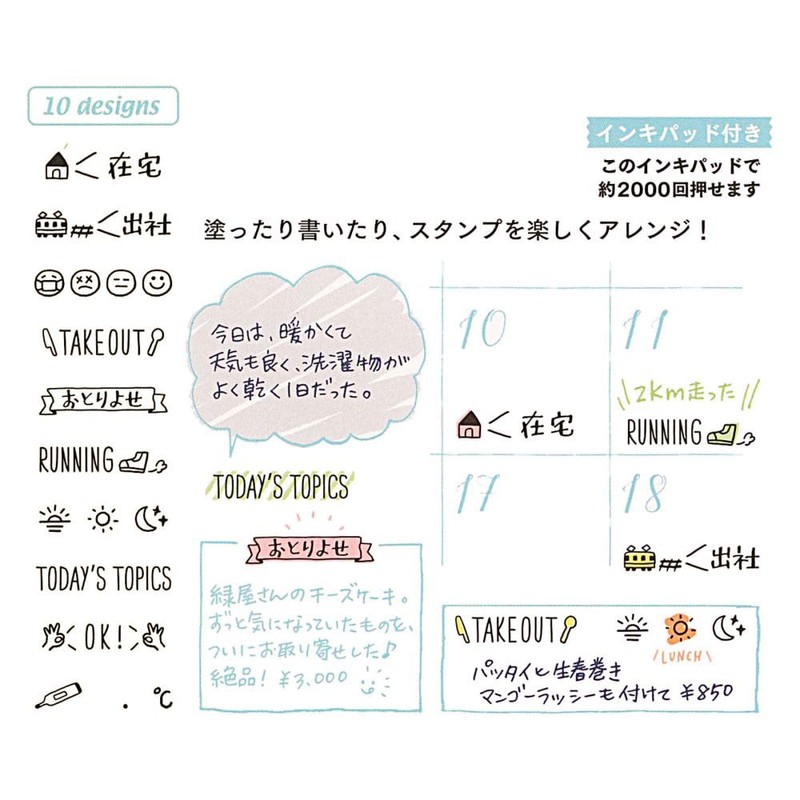 10 designs
在宅
出社
TAKEOUT
おとりよせ
RUNNING
TODAY'S TOPICS
OK!
. ℃
インキパッド付き
このインキパッドで
約2000回押せます
塗ったり書いたり、スタンプを楽しくアレンジ！
今日は、暖かくて
天気も良く、洗濯物が
よく乾く1日だった。
TODAY'S TOPICS
おとりよせ
緑屋さんのチーズケーキ。
ずっと気になっていたものを、
ついにお取り寄せした♪
絶品！ ¥3,000
10
在宅
11
2km走った
RUNNING
17
18
出社
TAKEOUT
LUNCH
パッタイと生春巻き
マンゴーラッシーも付けて ¥850